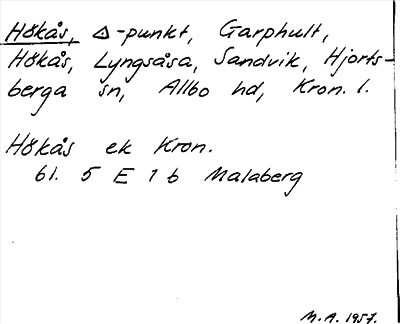 Hökås, △-punkt, Garphult,
Hökås, Lyngsåsa, Sandvik, Hjorts-
berga sn, Allbo hd, Kron. l.
Hökås ek Kron.
61. 5 E 1 b Malaberg
M.A. 1957.